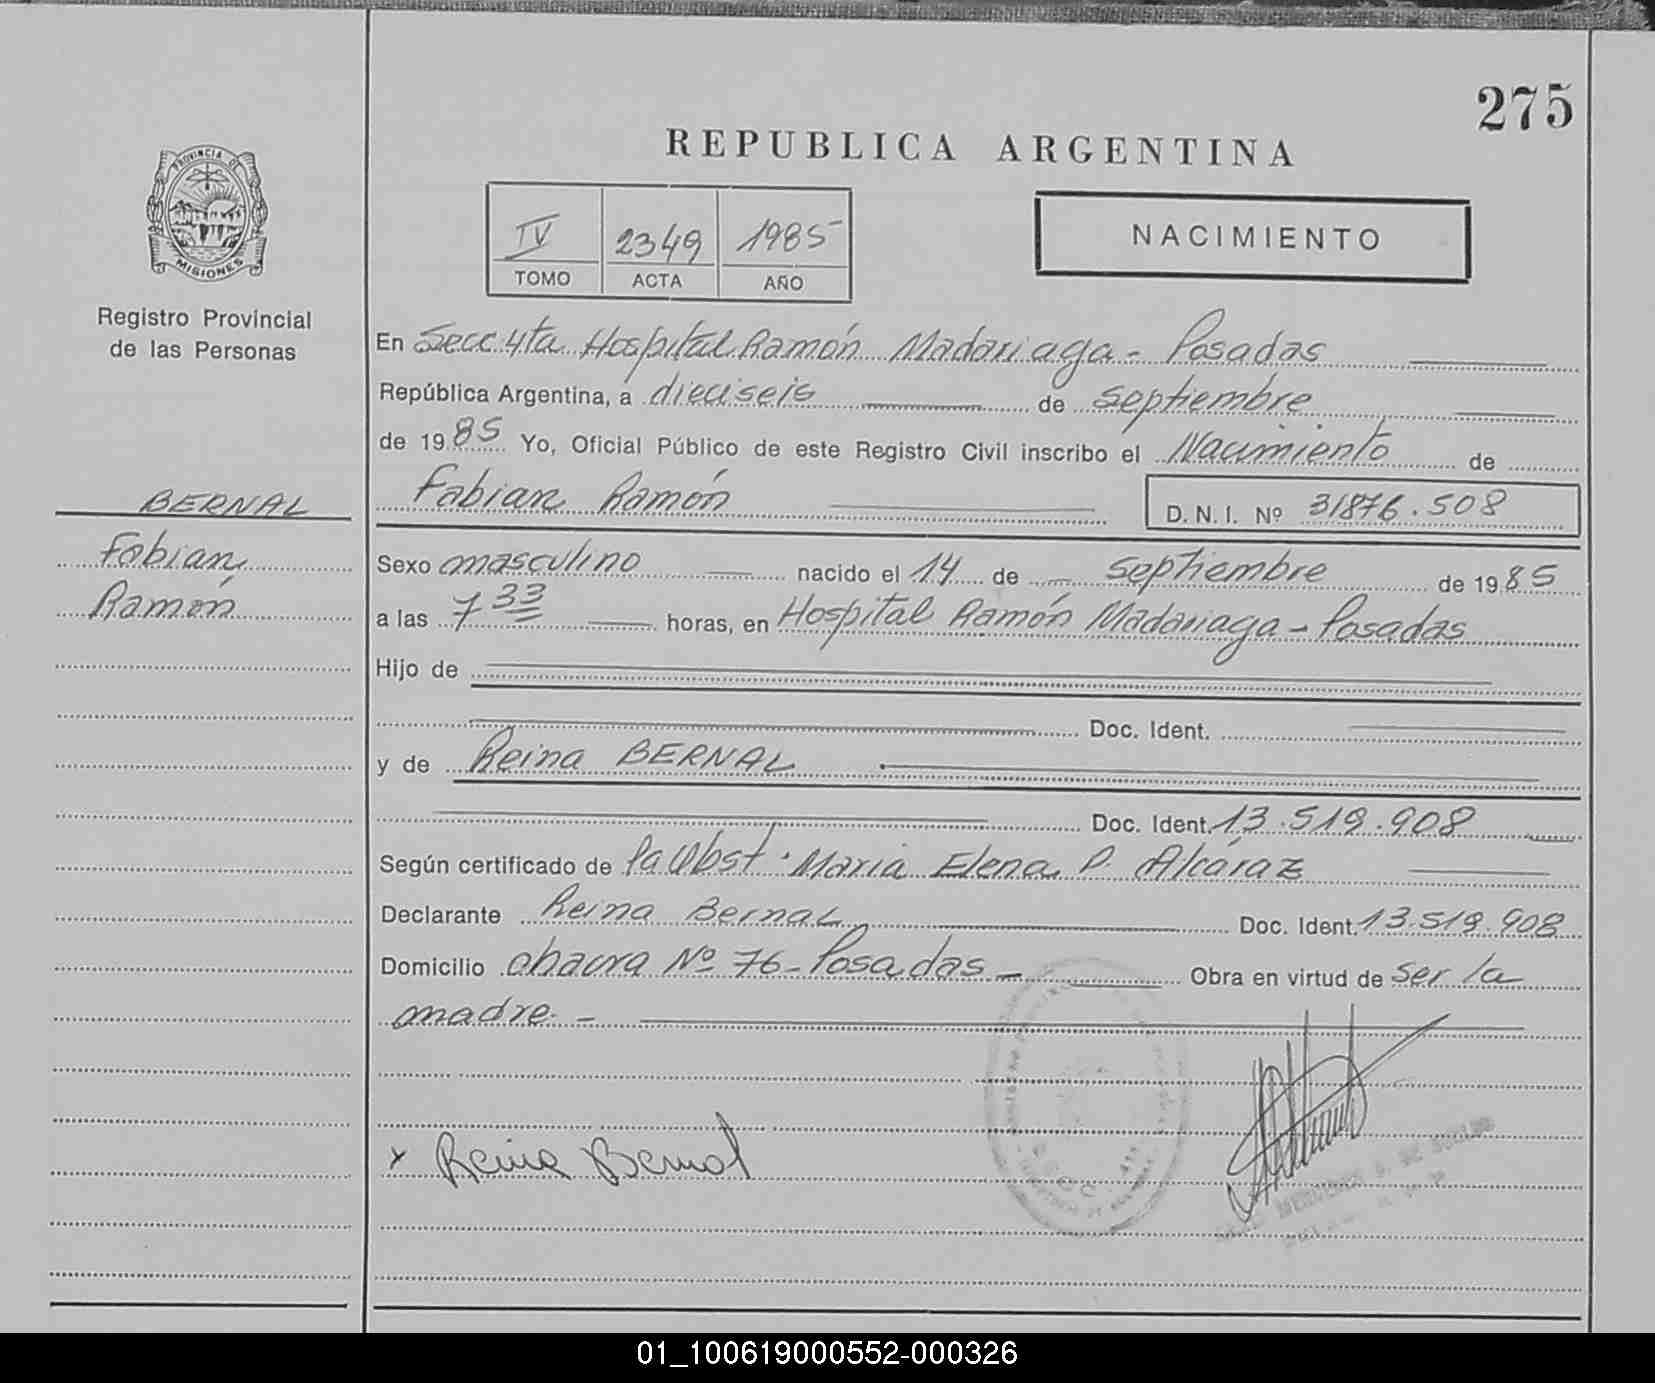 275
REPUBLICA ARGENTINA
PROVINCIA DE
MISIONES
Registro Provincial
de las Personas
IV 2349 1985
TOMO ACTA AÑO
NACIMIENTO
En Secc 4ta Hospital Ramón Madariaga - Posadas
República Argentina, a dieciseis de septiembre
de 1985 Yo, Oficial Público de este Registro Civil inscribo el Nacimiento de
Fabian Ramón D.N.I. Nº 31876.508
BERNAL
Fabian
Ramón
Sexo masculino nacido el 14 de septiembre de 1985
a las 7 33 horas, en Hospital Ramón Madariaga - Posadas
Hijo de
Doc. Ident.
y de Reina BERNAL
Doc. Ident. 13.519.908
Según certificado de Obst. Maria Elena P. Alcáraz
Declarante Reina Bernal Doc. Ident. 13.519.908
Domicilio chacra Nº 76 - Posadas - Obra en virtud de ser la
madre. -
x Reina Bernal
01_100619000552-000326